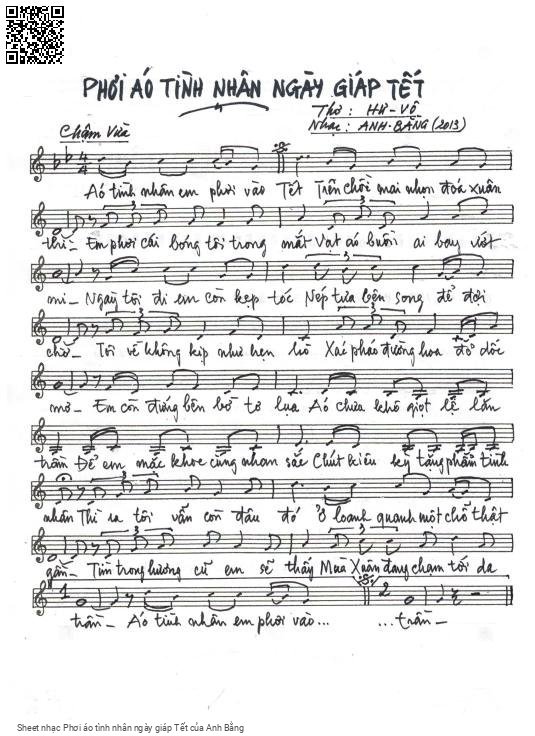 PHƠI ÁO TÌNH NHÂN NGÀY GIÁP TẾT
Thơ : HƯ-VÔ
Chậm Vừa
Nhạc : ANH-BẰNG (2013)
Áo tình nhân em phơi vào Tết Trên chồi mai nhọn đoá xuân
thì_ Em phơi cái bóng tôi trong mắt Vạt áo buồn ai bay vút
mi_ Ngày tôi đi em còn kẹp tóc Nép tựa bên song để đợi
chờ_ Tôi về không kịp như hẹn hò Xác pháo đường hoa đỏ dốc
mơ_ Em còn đứng bên bờ tơ lụa Áo chưa khô giọt lệ lăn
trầm Để em mặc khoe cùng nhan sắc Chút kiêu kỳ tặng phẩm tình
nhân Thì ra tôi vẫn còn đâu đó Ở loanh quanh một chỗ thật
gần_ Tìm trong hương cũ em sẽ thấy Mùa Xuân đang chạm tới da
1 2
trần_ Áo tình nhân em phơi vào... ...trần_
Sheet nhạc Phơi áo tình nhân ngày giáp Tết của Anh Bằng